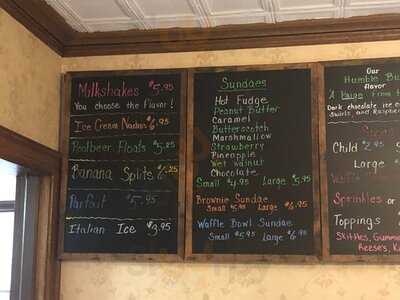 Milkshakes $5.95
You choose the Flavor!
Ice Cream Nachos $6.95
Rootbeer Floats $5.25
Banana Splits $7.25
Parfait $5.95
Italian Ice $3.95
Sundaes
Hot Fudge
Peanut Butter
Caramel
Butterscotch
Marshmallow
Strawberry
Pineapple
Wet Walnut
Chocolate
Small $4.95 Large $5.95
Brownie Sundae
Small $5.95 Large $6.95
Waffle Bowl Sundae
Small $5.95 Large $6.95
Our
Humble Bu
flavor
Dark chocolate ice c
Swirls, and Raspber
Child $2.95
Large
Sprinkles or
Toppings
Skittles, Gummi
Reese's, K